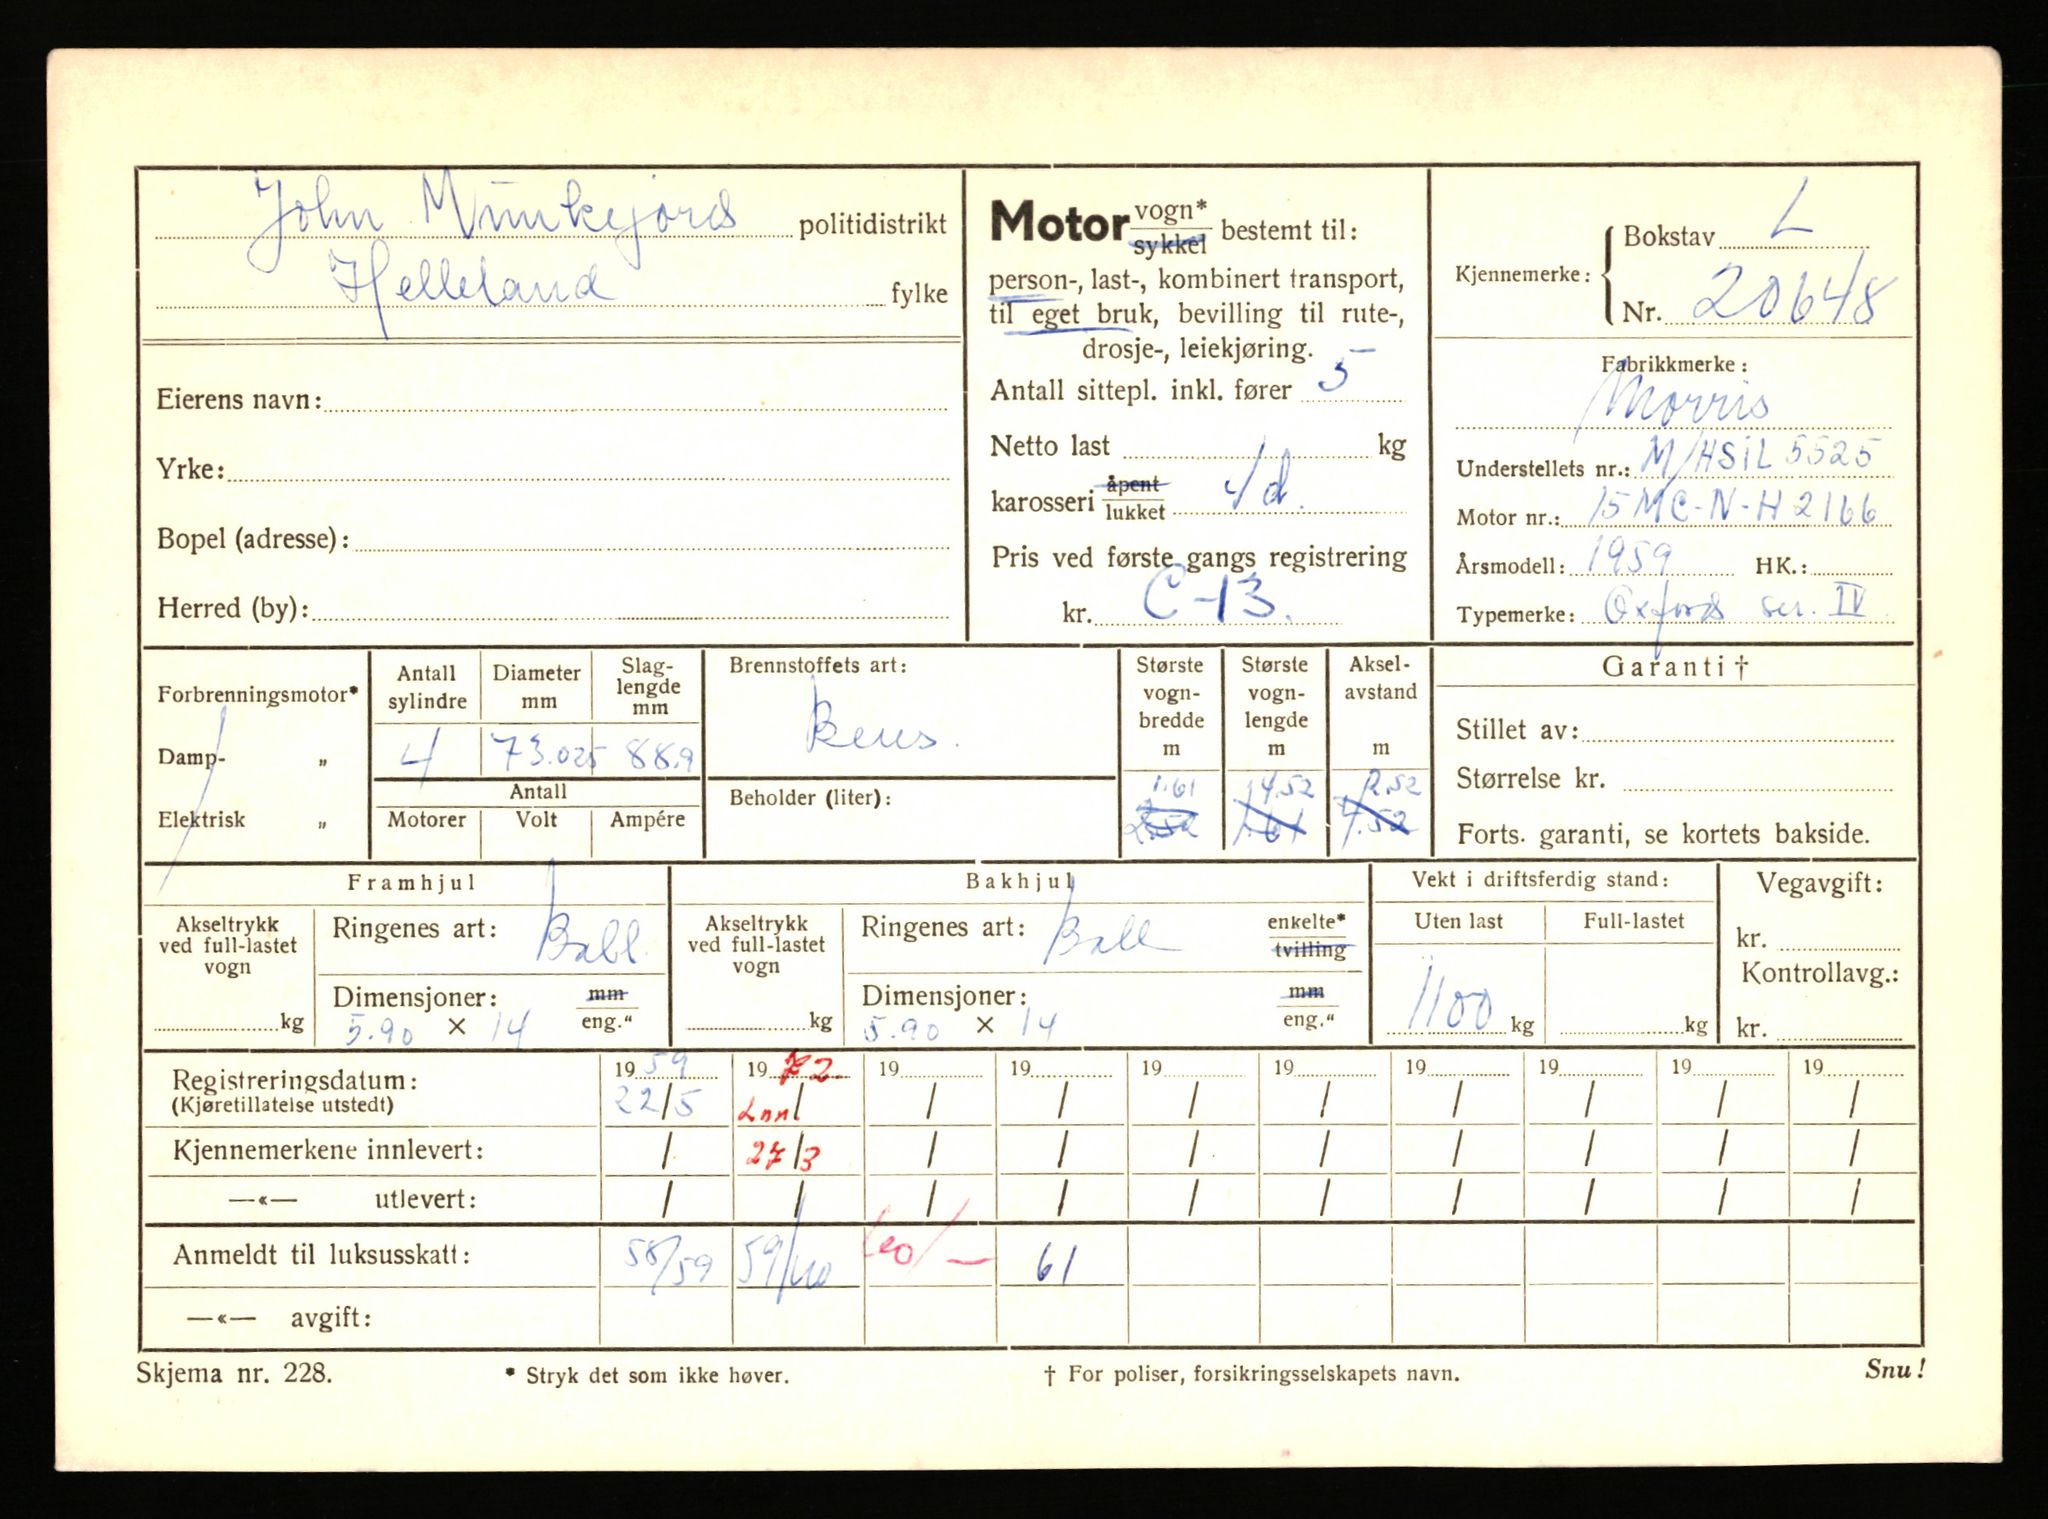 John Munkejord politidistrikt
Helleland fylke
Eierens navn:
Yrke:
Bopel (adresse):
Herred (by):
Motor vogn*
sykkel bestemt til:
person-, last-, kombinert transport,
til eget bruk, bevilling til rute-,
drosje-, leiekjøring.
Antall sittepl. inkl. fører 5
Netto last kg
karosseri åpent
lukket 4/d.
Pris ved første gangs registrering
kr. C-13.
Kjennemerke: Bokstav L
Nr. 20648
Fabrikkmerke:
Morris
Understellets nr.: M/HSIL 5525
Motor nr.: 15MC-N-H2166
Årsmodell: 1959 HK.:
Typemerke: Oxford ser. IV
Forbrenningsmotor*
Damp- „
Elektrisk „
Antall sylindre 4
Diameter mm 73.025
Slag-
lengde
mm 88.9
Antall
Motorer Volt Ampére
Brennstoffets art:
Bens.
Beholder (liter):
Største
vogn-
bredde
m
1.61
2.52
Største
vogn-
lengde
m
4.52
1.61
Aksel-
avstand
m
2.52
4.52
Garanti †
Stillet av:
Størrelse kr.
Forts. garanti, se kortets bakside.
Framhjul
Akseltrykk
ved full-lastet
vogn
kg
Ringenes art: Ball.
Dimensjoner: mm
5.90 × 14 eng."
Bakhjul
Akseltrykk
ved full-lastet
vogn
kg
Ringenes art: Ball enkelte*
tvilling
Dimensjoner: mm
5.90 × 14 eng."
Vekt i driftsferdig stand:
Uten last Full-lastet
1100 kg kg
Vegavgift:
kr.
Kontrollavg.:
kr.
Registreringsdatum: 1959 1972 19 19 19 19 19 19 19 19
(Kjøretillatelse utstedt) 22/5 Inn/ / / / / / / / /
Kjennemerkene innlevert: / 27/3 / / / / / / / /
—«— utlevert: / / / / / / / / / /
Anmeldt til luksusskatt: 58/59 59/60 60/— 61
—«— avgift:
Skjema nr. 228. * Stryk det som ikke høver. † For poliser, forsikringsselskapets navn. Snu!